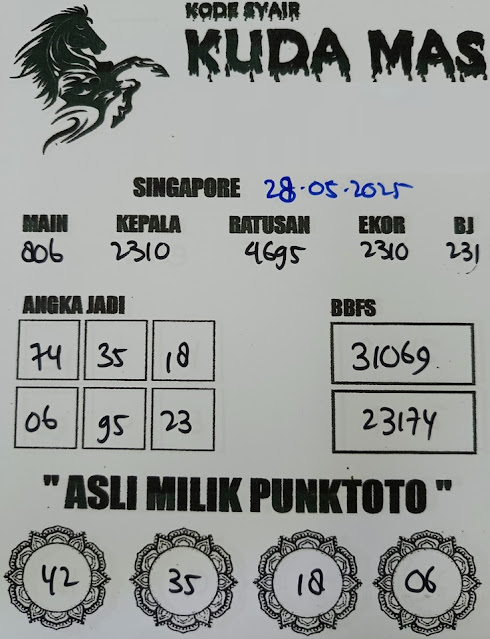 KODE SYAIR
KUDA MAS
SINGAPORE 28-05-2025
MAIN KEPALA RATUSAN EKOR BJ
806 2310 4695 2310 231
ANGKA JADI BBFS
74 35 18 31069
06 95 23 23174
" ASLI MILIK PUNKTOTO "
42 35 18 06